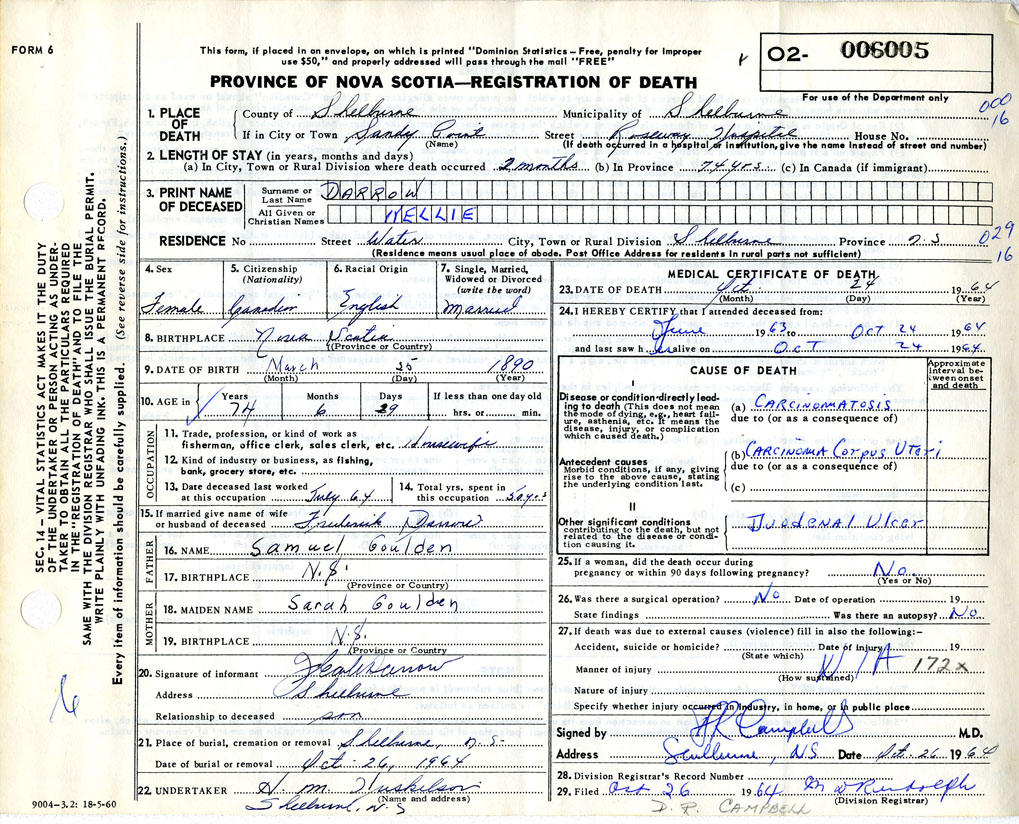 FORM 6
This form, if placed in an envelope, on which is printed "Dominion Statistics – Free, penalty for improper
use $50," and properly addressed will pass through the mail "FREE"
PROVINCE OF NOVA SCOTIA—REGISTRATION OF DEATH
02- 006005
For use of the Department only
000
16
1. PLACE OF DEATH
County of Shelburne Municipality of Shelburne
If in City or Town Sandy Point Street Roseway Hospital House No.
(Name) (If death occurred in a hospital or institution, give the name instead of street and number)
2. LENGTH OF STAY (in years, months and days)
(a) In City, Town or Rural Division where death occurred 2 months (b) In Province 74 yrs. (c) In Canada (if immigrant)
3. PRINT NAME OF DECEASED
Surname or Last Name DARROW
All Given or Christian Names NELLIE
RESIDENCE No Street Water City, Town or Rural Division Shelburne Province N.S
029
16
(Residence means usual place of abode. Post Office Address for residents in rural parts not sufficient)
4. Sex
Female
5. Citizenship
(Nationality)
Canadian
6. Racial Origin
English
7. Single, Married, Widowed or Divorced
(write the word)
Married
8. BIRTHPLACE Nova Scotia
(Province or Country)
9. DATE OF BIRTH March 25 1890
(Month) (Day) (Year)
10. AGE in Years Months Days If less than one day old
74 6 29 hrs. or min.
OCCUPATION
11. Trade, profession, or kind of work as
fisherman, office clerk, sales clerk, etc. Housewife
12. Kind of industry or business, as fishing,
bank, grocery store, etc.
13. Date deceased last worked
at this occupation July 64
14. Total yrs. spent in
this occupation 50 yrs
15. If married give name of wife
or husband of deceased Frederick Darrow
FATHER
16. NAME Samuel Goulden
17. BIRTHPLACE N.S.
(Province or Country)
MOTHER
18. MAIDEN NAME Sarah Goulden
19. BIRTHPLACE N.S.
(Province or Country
20. Signature of informant
Address Shelburne
Relationship to deceased son
21. Place of burial, cremation or removal Shelburne, N.S-
Date of burial or removal Oct. 26, 1964
22. UNDERTAKER H. M. Huskilson
(Name and address)
Shelburne, N.S
9004–3.2: 18-5-60
MEDICAL CERTIFICATE OF DEATH
23. DATE OF DEATH Oct. 24 1964
(Month) (Day) (Year)
24. I HEREBY CERTIFY that I attended deceased from:
June 1963 to OCT 24 1964
and last saw h alive on OCT 24 1964
CAUSE OF DEATH
Approximate interval between onset and death
I
Disease or condition directly leading to death (This does not mean the mode of dying, e.g., heart failure, asthenia, etc. It means the disease, injury, or complication which caused death.)
(a) CARCINOMATOSIS
due to (or as a consequence of)
Antecedent causes
Morbid conditions, if any, giving rise to the above cause, stating the underlying condition last.
(b) CARCINOMA CORPUS UTERI
due to (or as a consequence of)
(c)
II
Other significant conditions
contributing to the death, but not related to the disease or condition causing it.
DUODENAL ULCER
25. If a woman, did the death occur during
pregnancy or within 90 days following pregnancy? No
(Yes or No)
26. Was there a surgical operation? No Date of operation 19
State findings Was there an autopsy? No
27. If death was due to external causes (violence) fill in also the following:–
Accident, suicide or homicide? Date of injury 19
(State which)
N/A 172x
Manner of injury
(How sustained)
Nature of injury
Specify whether injury occurred in industry, in home, or in public place
Signed by Campbell M.D.
Address Shelburne, N.S Date Oct. 26 1964
28. Division Registrar's Record Number
29. Filed Oct 26 1964 M W Rudolph
(Division Registrar)
D. R. CAMPBELL
SEC. 14 – VITAL STATISTICS ACT MAKES IT THE DUTY
OF THE UNDERTAKER OR PERSON ACTING AS UNDER-
TAKER TO OBTAIN ALL THE PARTICULARS REQUIRED
IN THE "REGISTRATION OF DEATH" AND TO FILE THE
SAME WITH THE DIVISION REGISTRAR WHO SHALL ISSUE THE BURIAL PERMIT.
WRITE PLAINLY WITH UNFADING INK. THIS IS A PERMANENT RECORD.
Every item of information should be carefully supplied. (See reverse side for instructions.)